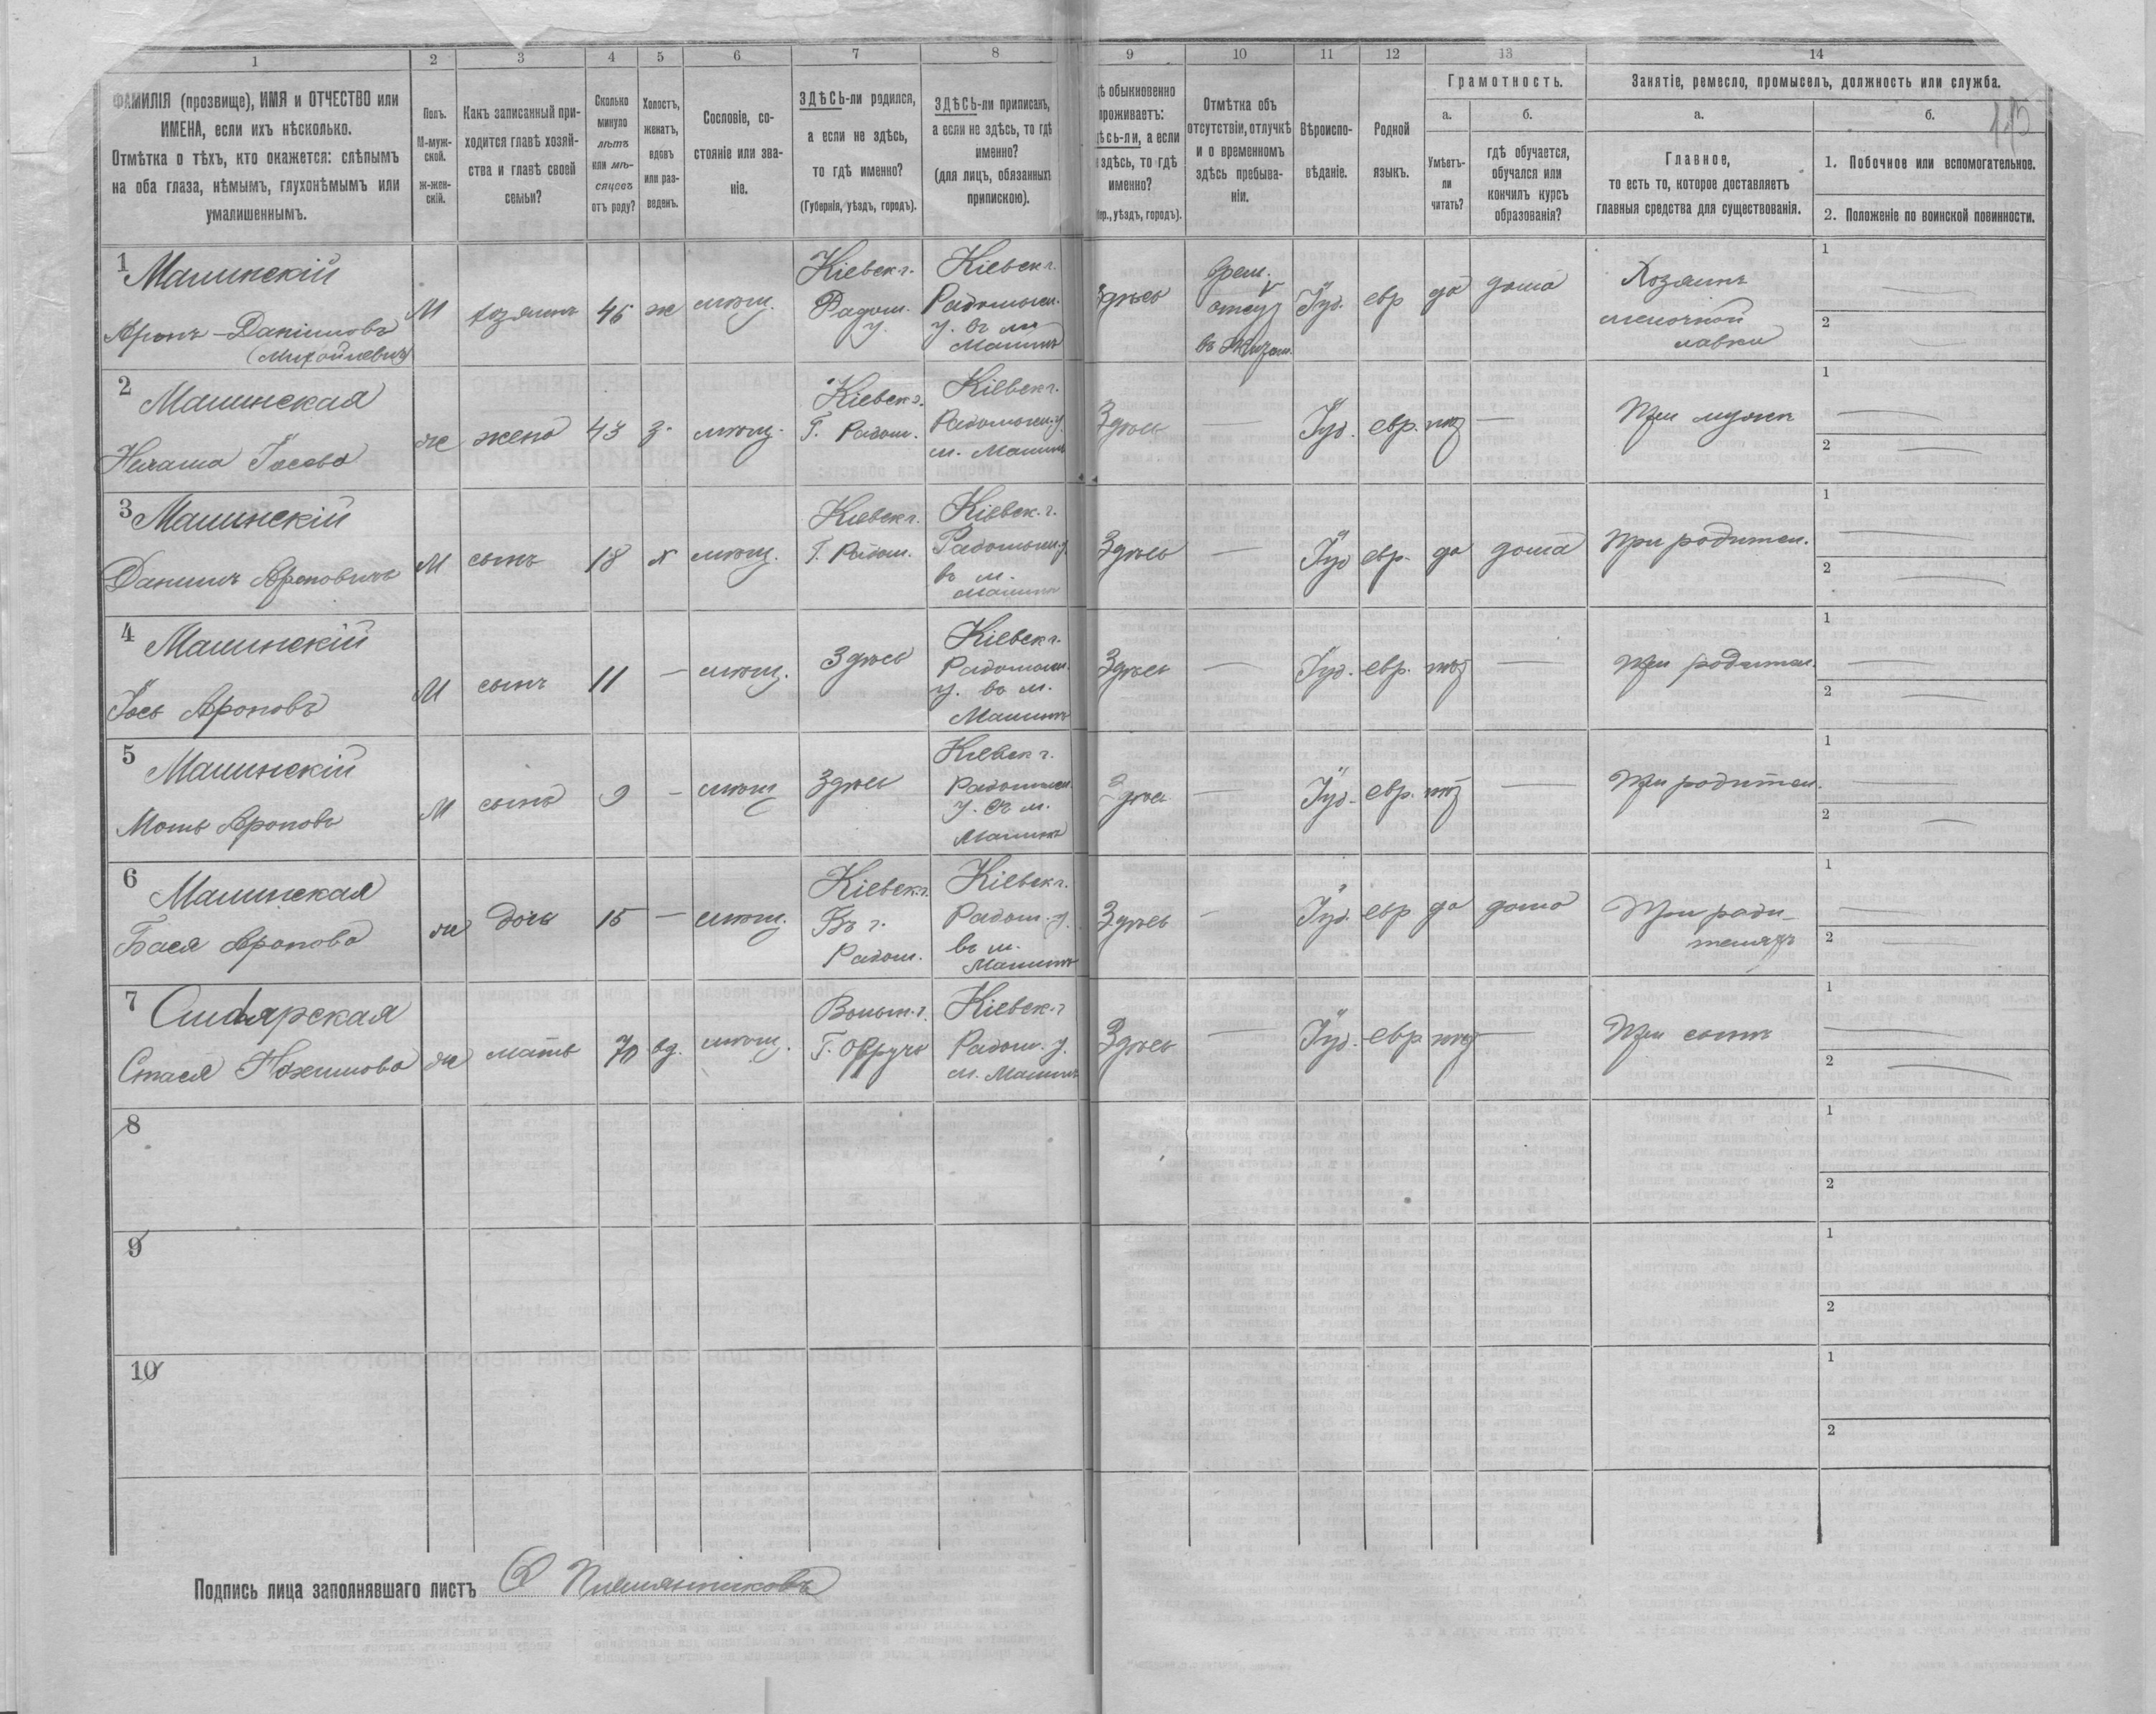 1 2 3 4 5 6 7 8 9 10 11 12 13 14
ФАМИЛІЯ (прозвище), ИМЯ и ОТЧЕСТВО или
ИМЕНА, если ихъ нѣсколько.
Отмѣтка о тѣхъ, кто окажется: слѣпымъ
на оба глаза, нѣмымъ, глухонѣмымъ или
умалишеннымъ.
Полъ.
М-муж-
ской.
ж-жен-
скій.
Какъ записанный при-
ходится главѣ хозяй-
ства и главѣ своей
семьи?
Сколько
минуло
лѣтъ
или мѣ-
сяцевъ
отъ роду?
Холостъ,
женатъ,
вдовъ
или раз-
веденъ.
Сословіе, со-
стояніе или зва-
ніе.
ЗДѢСЬ-ли родился,
а если не здѣсь,
то гдѣ именно?
(Губернія, уѣздъ, городъ).
ЗДѢСЬ-ли приписанъ,
а если не здѣсь, то гдѣ
именно?
(для лицъ, обязанныхъ
припискою).
дѣ обыкновенно
проживаетъ:
дѣсь-ли, а если
здѣсь, то гдѣ
именно?
уѣздъ, городъ).
Отмѣтка объ
отсутствіи, отлучкѣ
и о временномъ
здѣсь пребыва-
ніи.
Вѣроиспо-
вѣданіе.
Родной
языкъ.
Грамотность.
а.
Умѣетъ-
ли
читать?
б.
гдѣ обучается,
обучался или
кончилъ курсъ
образованія?
Занятіе, ремесло, промыселъ, должность или служба.
а.
Главное,
то есть то, которое доставляетъ
главныя средства для существованія.
б.
1. Побочное или вспомогательное.
2. Положеніе по воинской повинности.
1 Малинскій
Аронъ-Даниловъ
(Михайлевичъ)
М хозяинъ 46 ж мѣщ.
Кіевск г.
Радом.
у.
Кіевск г.
Радомысл.
у. въ м.
Малинѣ
Здѣсь
врем.
отсут
Іуд. евр да дома
Хозяинъ
мелочной
лавки
1
2
2 Малинская
Нехама Іосева
ж жена 43 з. мѣщ.
Кіевск г.
Г. Радом.
Кіевск г.
Радомысл. у.
м. Малинѣ
Здѣсь — Іуд. евр. нѣт —
При мужѣ
1
2
3 Малинскій
Данилъ Ароновичъ
М сынъ 18 х мѣщ.
Кіевск г.
Г. Радом.
Кіевск. г.
Радомысл. у.
въ м.
Малинѣ
Здѣсь — Іуд евр. да дома
При родител.
1
2
4 Малинскій
Іось Ароновъ
М сынъ 11 — мѣщ.
Здѣсь
Кіевск г.
Радомысл.
у. въ м.
Малинѣ
Здѣсь — Іуд. евр. нѣт —
При родител.
1
2
5 Малинскій
Моть Ароновъ
М сынъ 9 — мѣщ
Здѣсь
Кіевск г.
Радомысл.
у. въ м.
Малинѣ
Здѣсь — Іуд. евр. нѣт —
При родител.
1
2
6 Малинская
Бася Аронова
ж дочь 15 — мѣщ.
Кіевск г.
Въ г.
Радом.
Кіевск г.
Радом. у.
въ м.
Малинѣ
Здѣсь — Іуд. евр да дома
При роди-
теляхъ
1
2
7
Стася Нахимова
ж мать 70 вд. мѣщ.
Волын. г.
Г. Овручъ
Кіевск. г
Радом. у.
м. Малинѣ
Здѣсь — Іуд. евр нѣт —
При сынѣ
1
2
8
1
2
9
1
2
10
1
2
Подпись лица заполнявшаго листъ